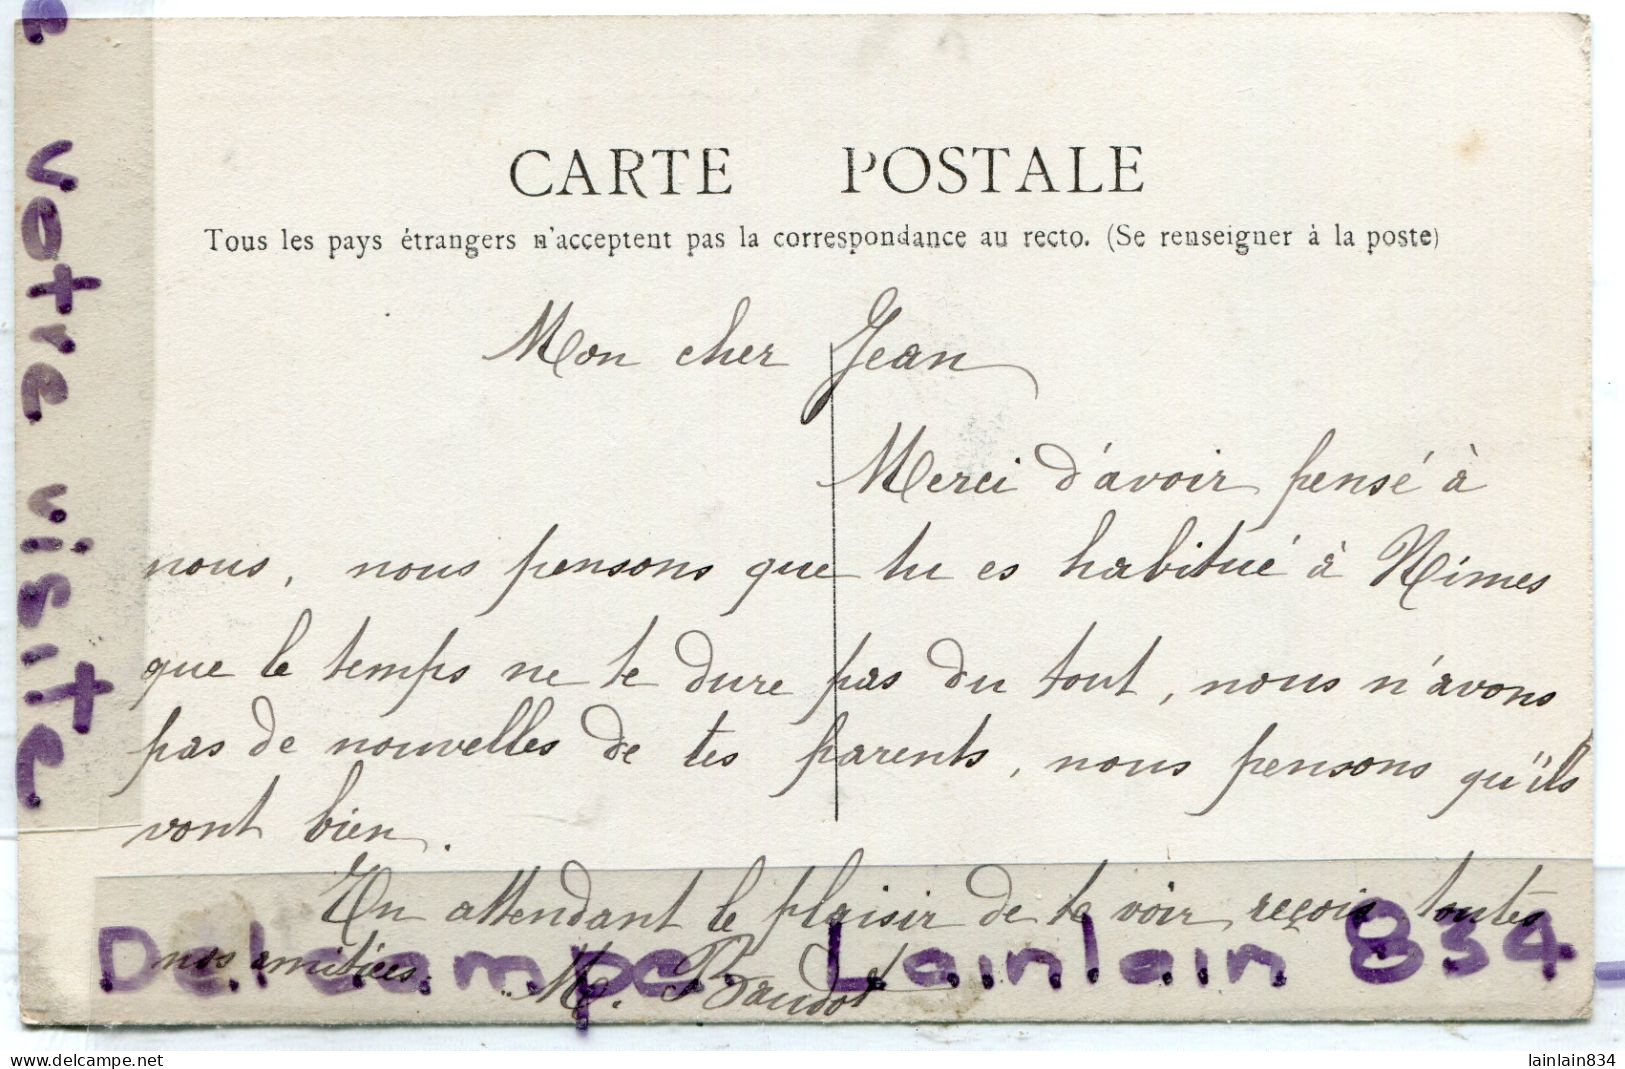 CARTE POSTALE
Tous les pays étrangers n'acceptent pas la correspondance au recto. (Se renseigner à la poste)
Mon cher Jean
Merci d'avoir pensé à
nous, nous pensons que tu es habitué à Nimes
que le temps ne te dure pas du tout, nous n'avons
pas de nouvelles de tes parents, nous pensons qu'ils
vont bien.
En attendant le plaisir de te voir reçois toutes
nos amitiées.
M. Baudot
votre visite
Delcampe. Lainlain 834
www.delcampe.net
lainlain834